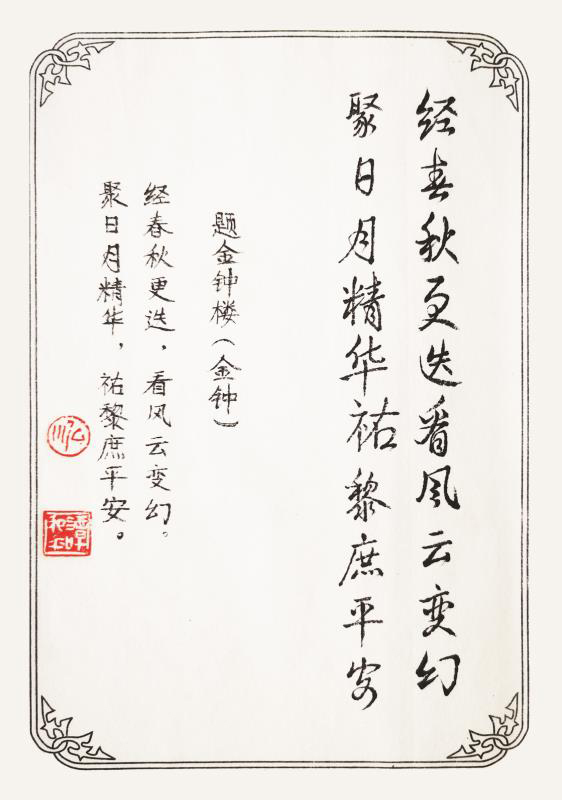 经春秋更迭看风云变幻
聚日月精华祐黎庶平安
题金钟楼（金钟）
经春秋更迭，看风云变幻。
聚日月精华，祐黎庶平安。